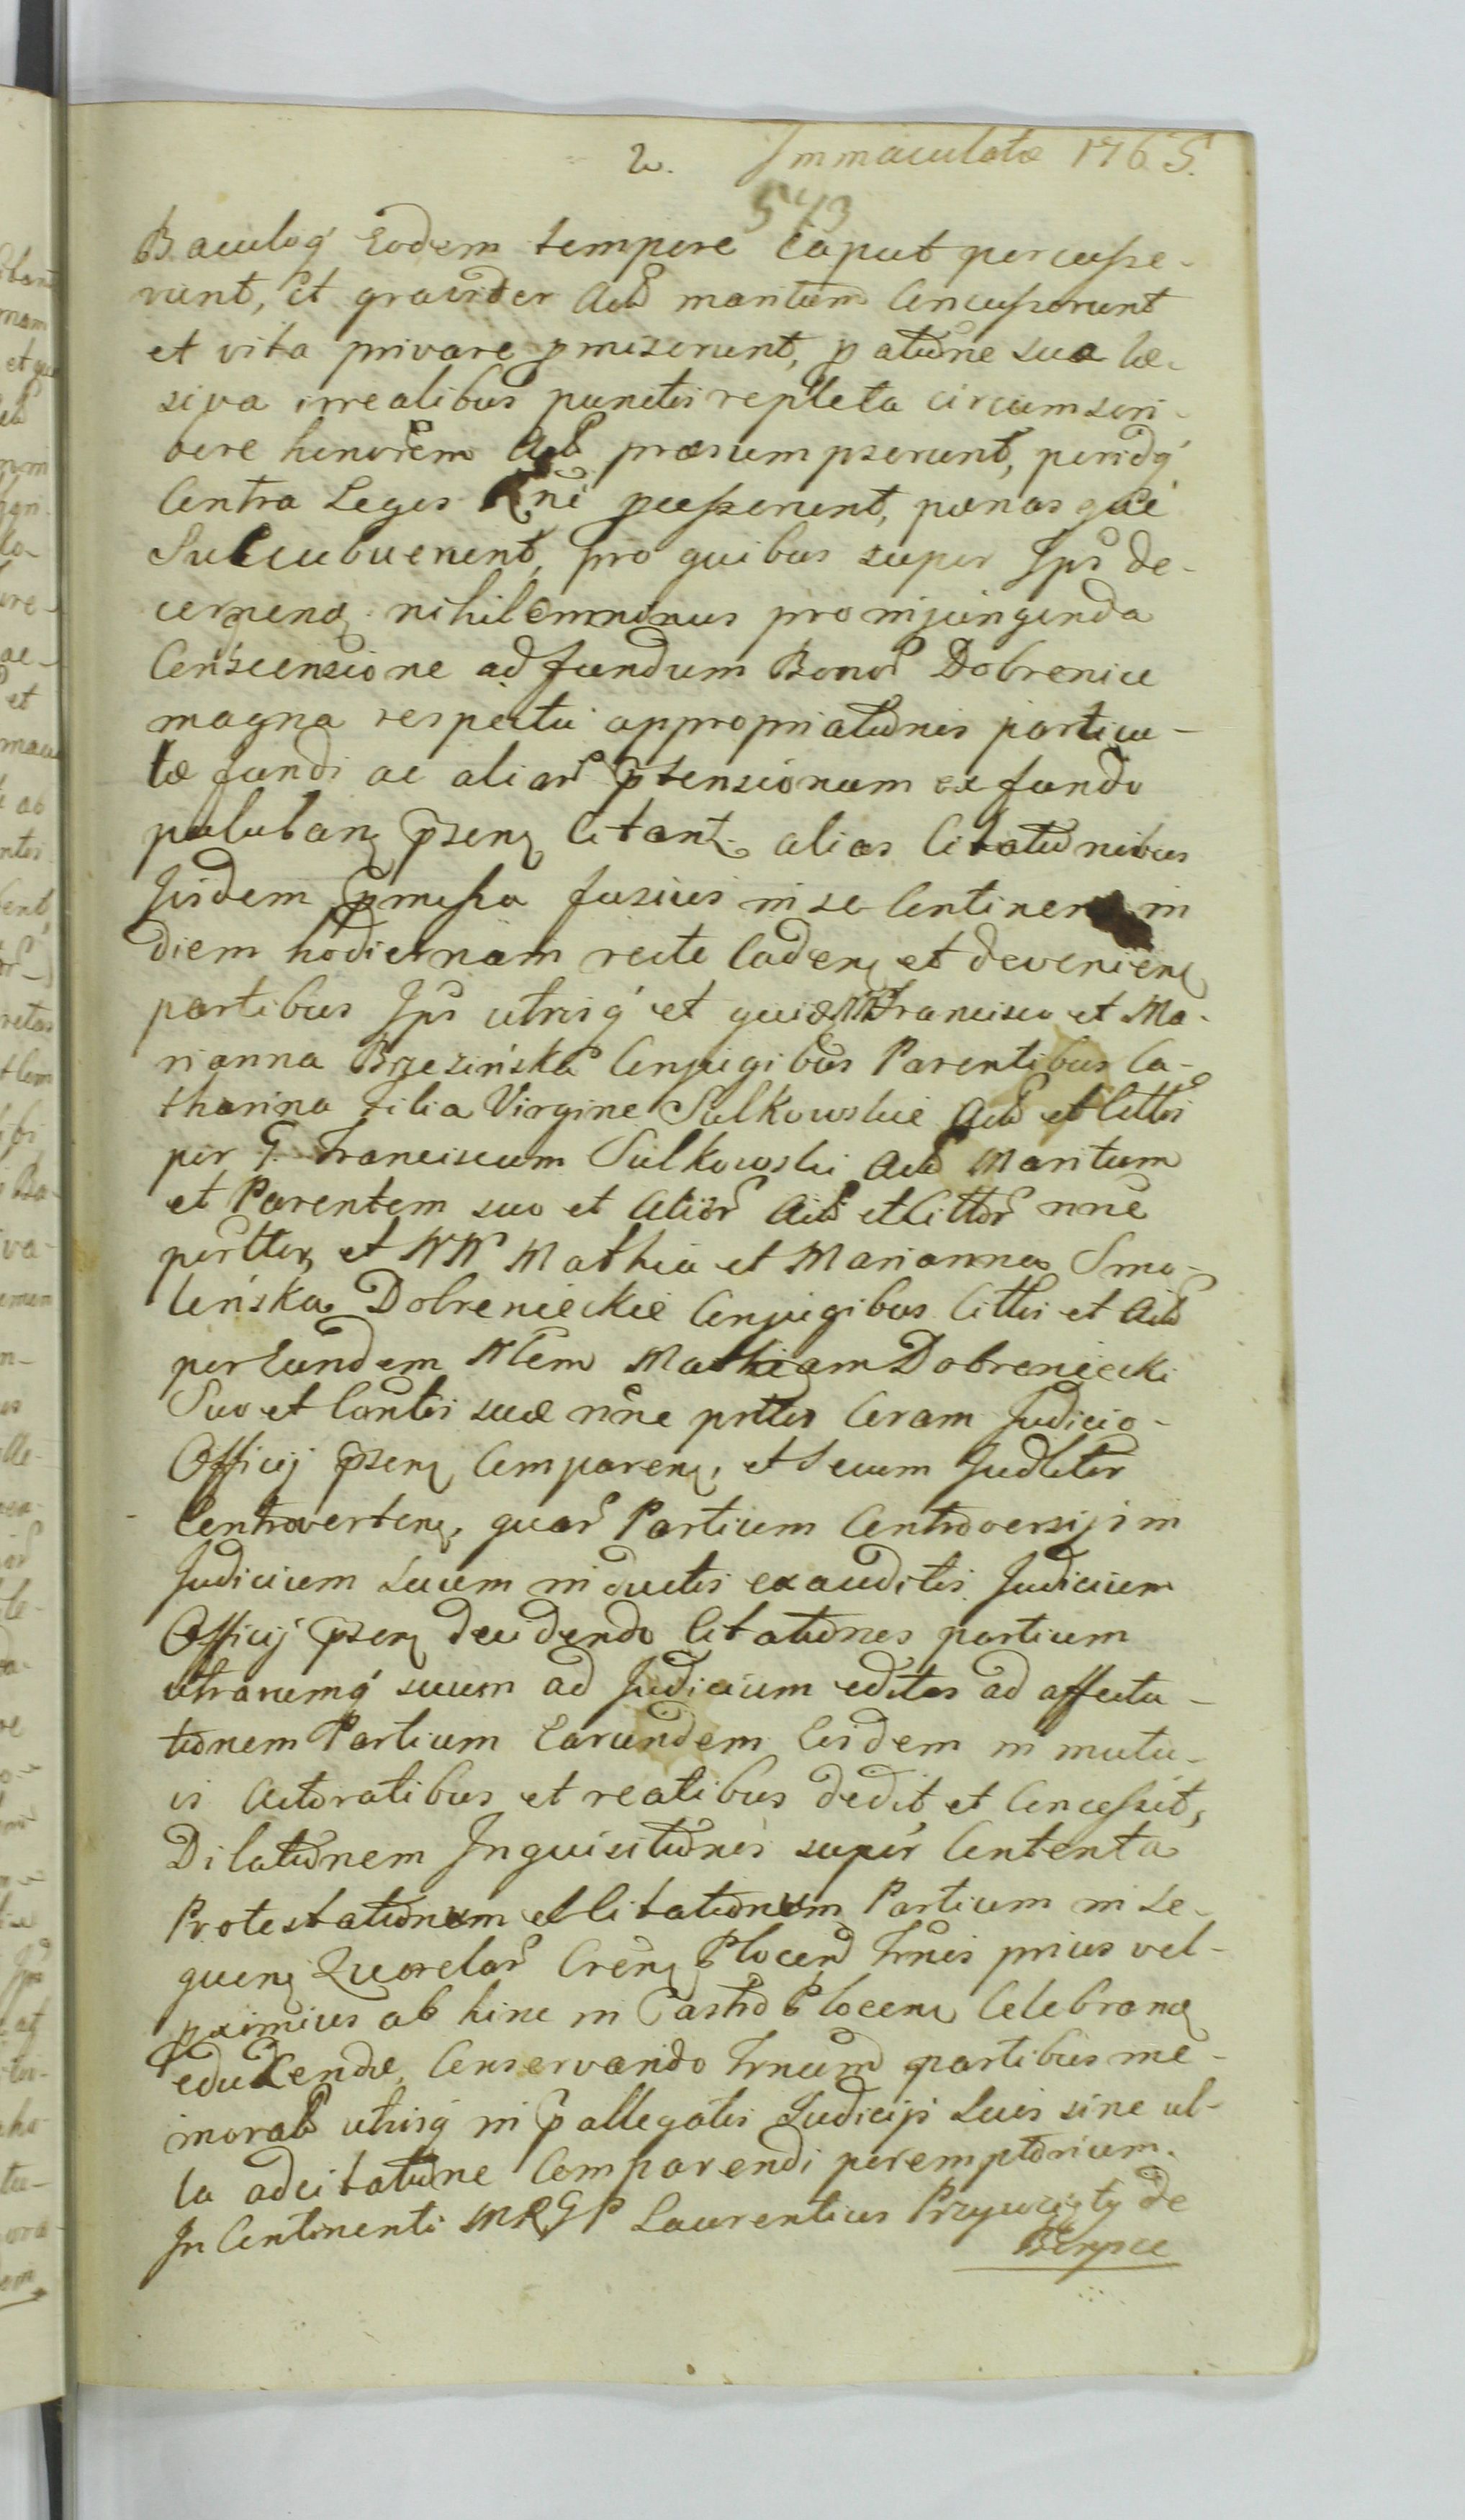 2. Immaculatæ 1765.
543
Baculoq́ Eodem tempore Caput percusse-
runt, Et graviter Actd maritum Concusserunt
et vita privare pmiserunt, p atione sua læ-
siva irrealibus punctis repleta circumscri-
bere honorem Actd præsumpserunt, peridq́
Contra Leges Rni pcesserunt, pænas q́ue
Succubuerunt, pro quibus super Ipś de-
cernenę nihilomninus pro injungenda
Conscensione ad fundum Bonor Dobrenice
magna respectu appropriationis particu-
læ fundi ac aliar ptensionum ex fundo
pululanę psenę Citant. alias Citationibus
Iisdem pmissa fusius in se Continen in
diem hodiernam recte Cadenę et devenienę
partibus Ipś utrisq́ et quidę MM Francisco et Ma-
rianna Brzezinska Conjugibus Parentibus Ca-
tharina filia Virgine Sulkowskie Actd et Cittis
per G. Franciscum Sulkowski Actd Maritum
et Parentem suo et Alior Actd et Cittor nne
psttter, et NN Mathia et Marianna Smo-
leńska Dobrenieckie Conjugibus Cittis et Actd
per Eundem Nlem Mathiam Dobreniecki
Suo et Contis suæ nne psttter Coram Judicio
Officij psenę Comparenę, et Secum Judlter
Controvertenę, quar Partium Controversijs in
Judicium Suum inductis exauditis Judicium
Officij psenę decidendo Citationes partium
utrarumq́ suum ad Judicium editas ad affecta-
tionem Partium Earundem Eisdem in mutu-
is Actoratibus et reatibus dedit et Concessit,
Dilationem Inquisitionis super Contenta
Protestationum et Citationum Partium in Se-
quenę Querelar Crenę Plocen Trnis prius vel
pximius ab hinc in Castro Plocenę Celebranę
educendæ, Conservando Trnum partibus me-
morat utrisq́ in pallegatis Judicijs Suis sine ul-
la adcitatione Comparendi peremptorium.
In Continenti MRGP Laurentius Przyuczięty de
Kempce